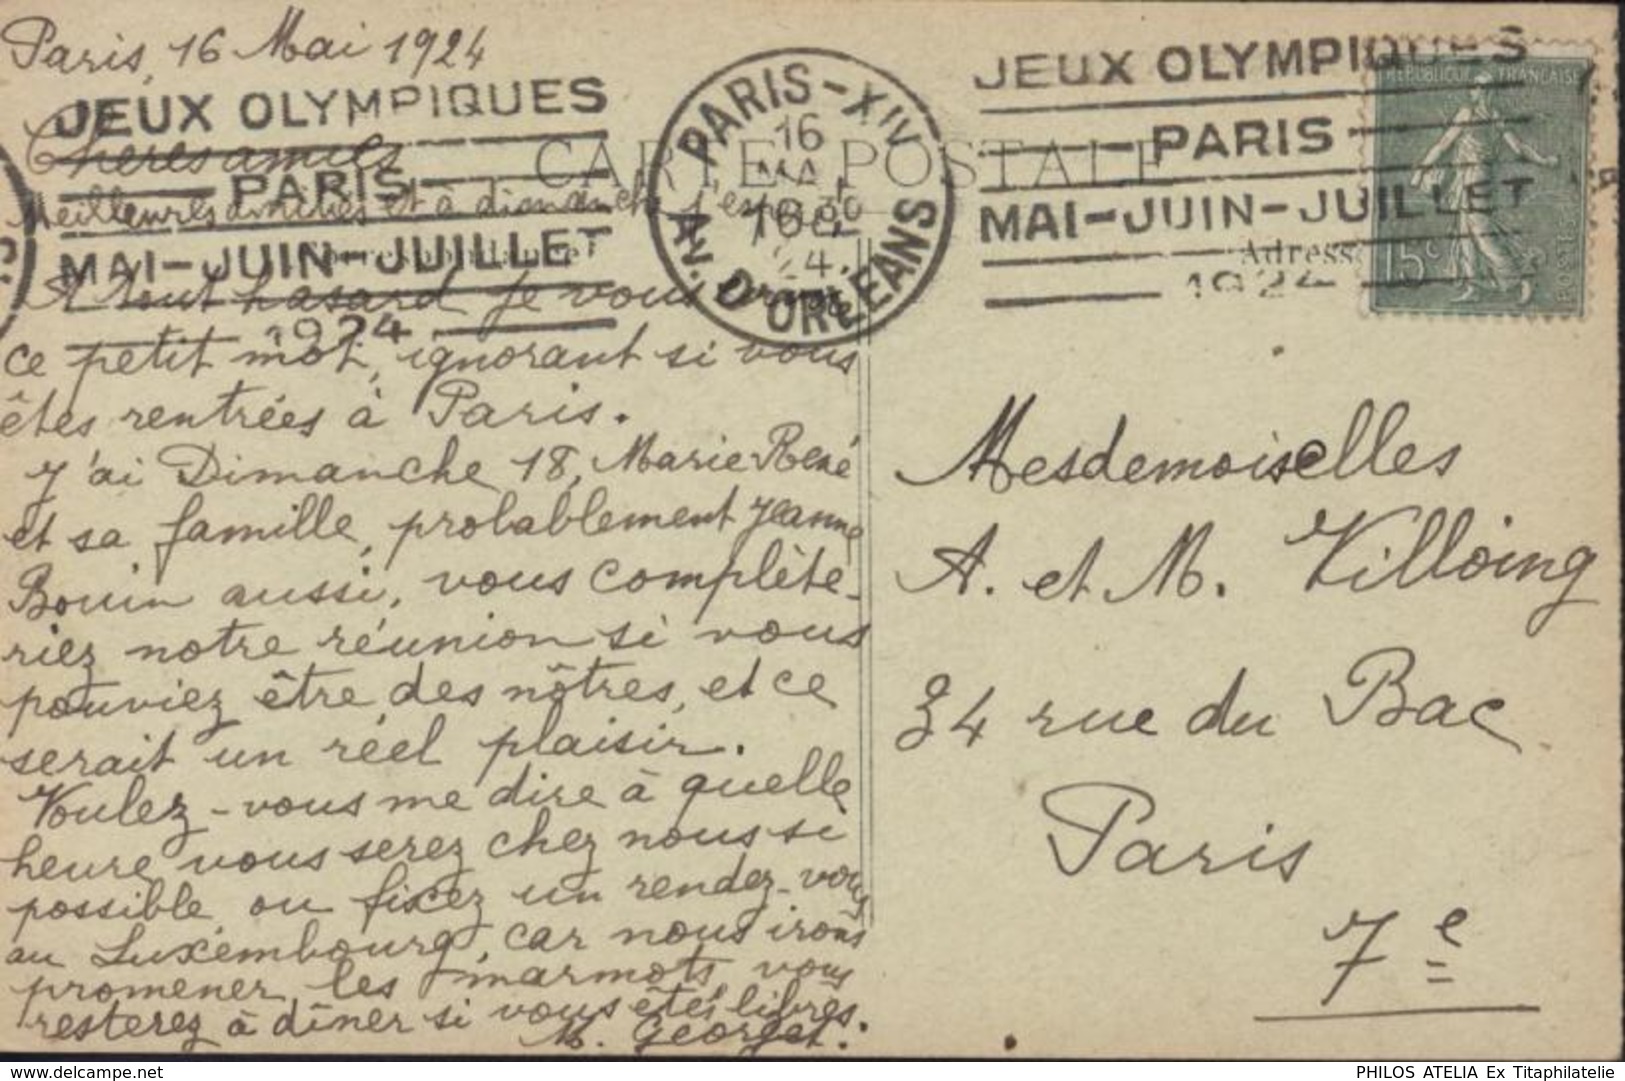 Paris, 16 Mai 1924
JEUX OLYMPIQUES
PARIS
MAI-JUIN-JUILLET
1924
Chères amies
Meilleures amitiés et à dimanche j'espère
A tout hasard je vous
ce petit mot, ignorant si vous
êtes rentrées à Paris.
J'ai Dimanche 18, Marie René
et sa famille, probablement Jeanne
Bouin aussi, vous complète-
riez notre réunion si vous
pouviez être des nôtres, et ce
serait un réel plaisir.
Voulez-vous me dire à quelle
heure vous serez chez nous si
possible, ou fixez un rendez-vous
au Luxembourg, car nous irons
promener les marmots, vous
resterez à dîner si vous êtes libres.
M. Georget.
CARTE POSTALE
PARIS-XIV
16
MAI
24
AV. D'ORLEANS
JEUX OLYMPIQUES
PARIS
MAI-JUIN-JUILLET
1924
REPUBLIQUE FRANÇAISE
15c
POSTES
Adresse
Mesdemoiselles
A. et M. Villoing
34 rue du Bac
Paris
7e
delcampe.net
PHILOS ATELIA Ex Titaphilatelie